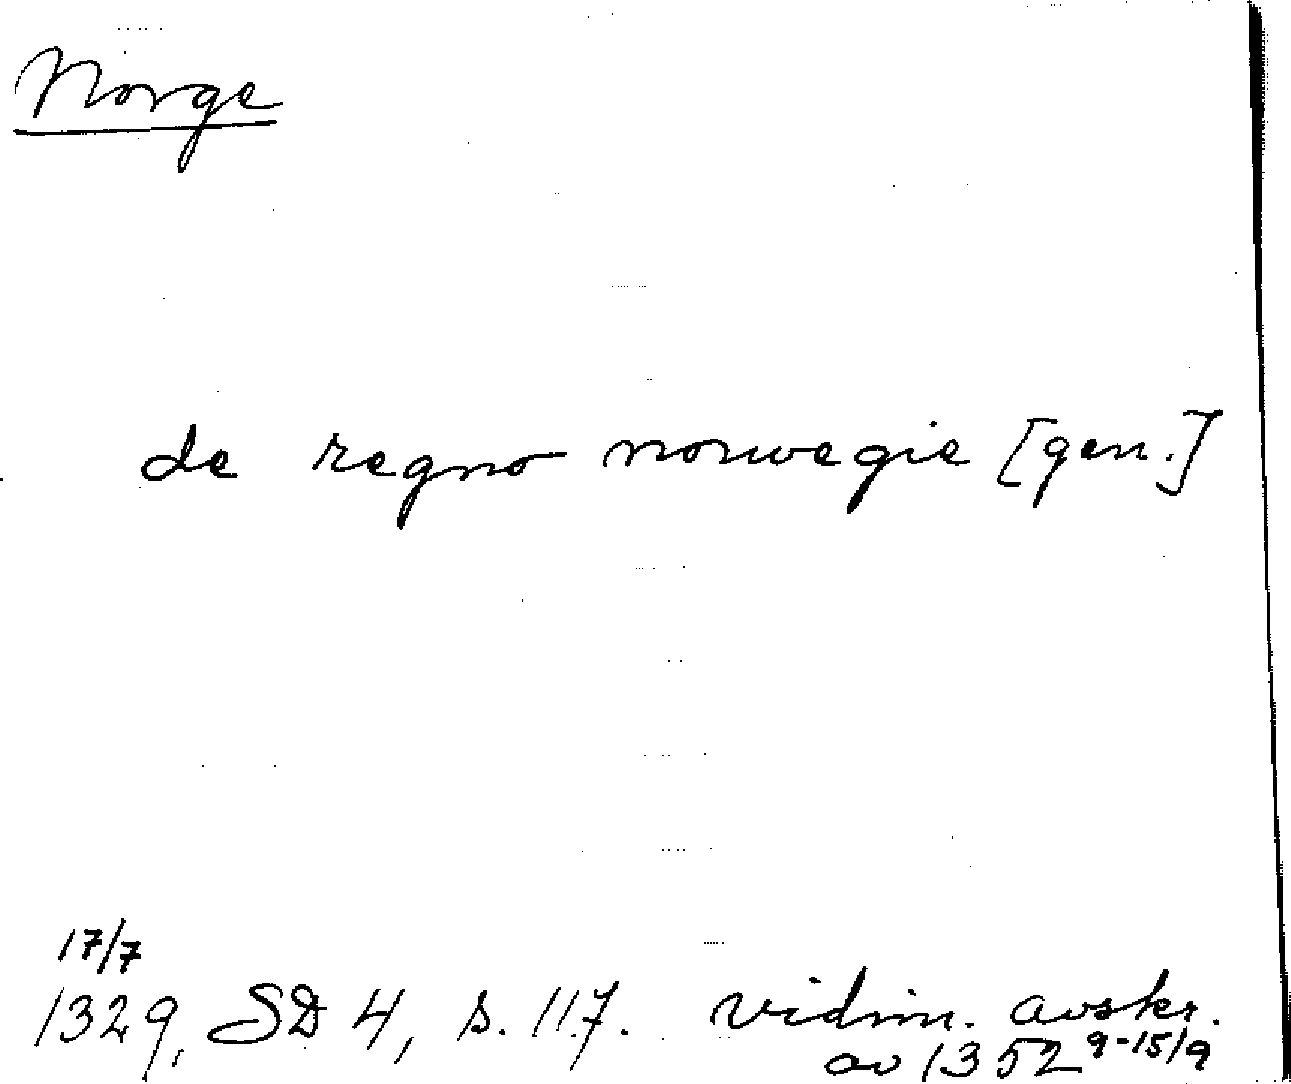 Norge
de regno norwegie [gen.]
17/7
1329, SD 4, s. 117. vidim. avskr.
av 1352 9-15/9